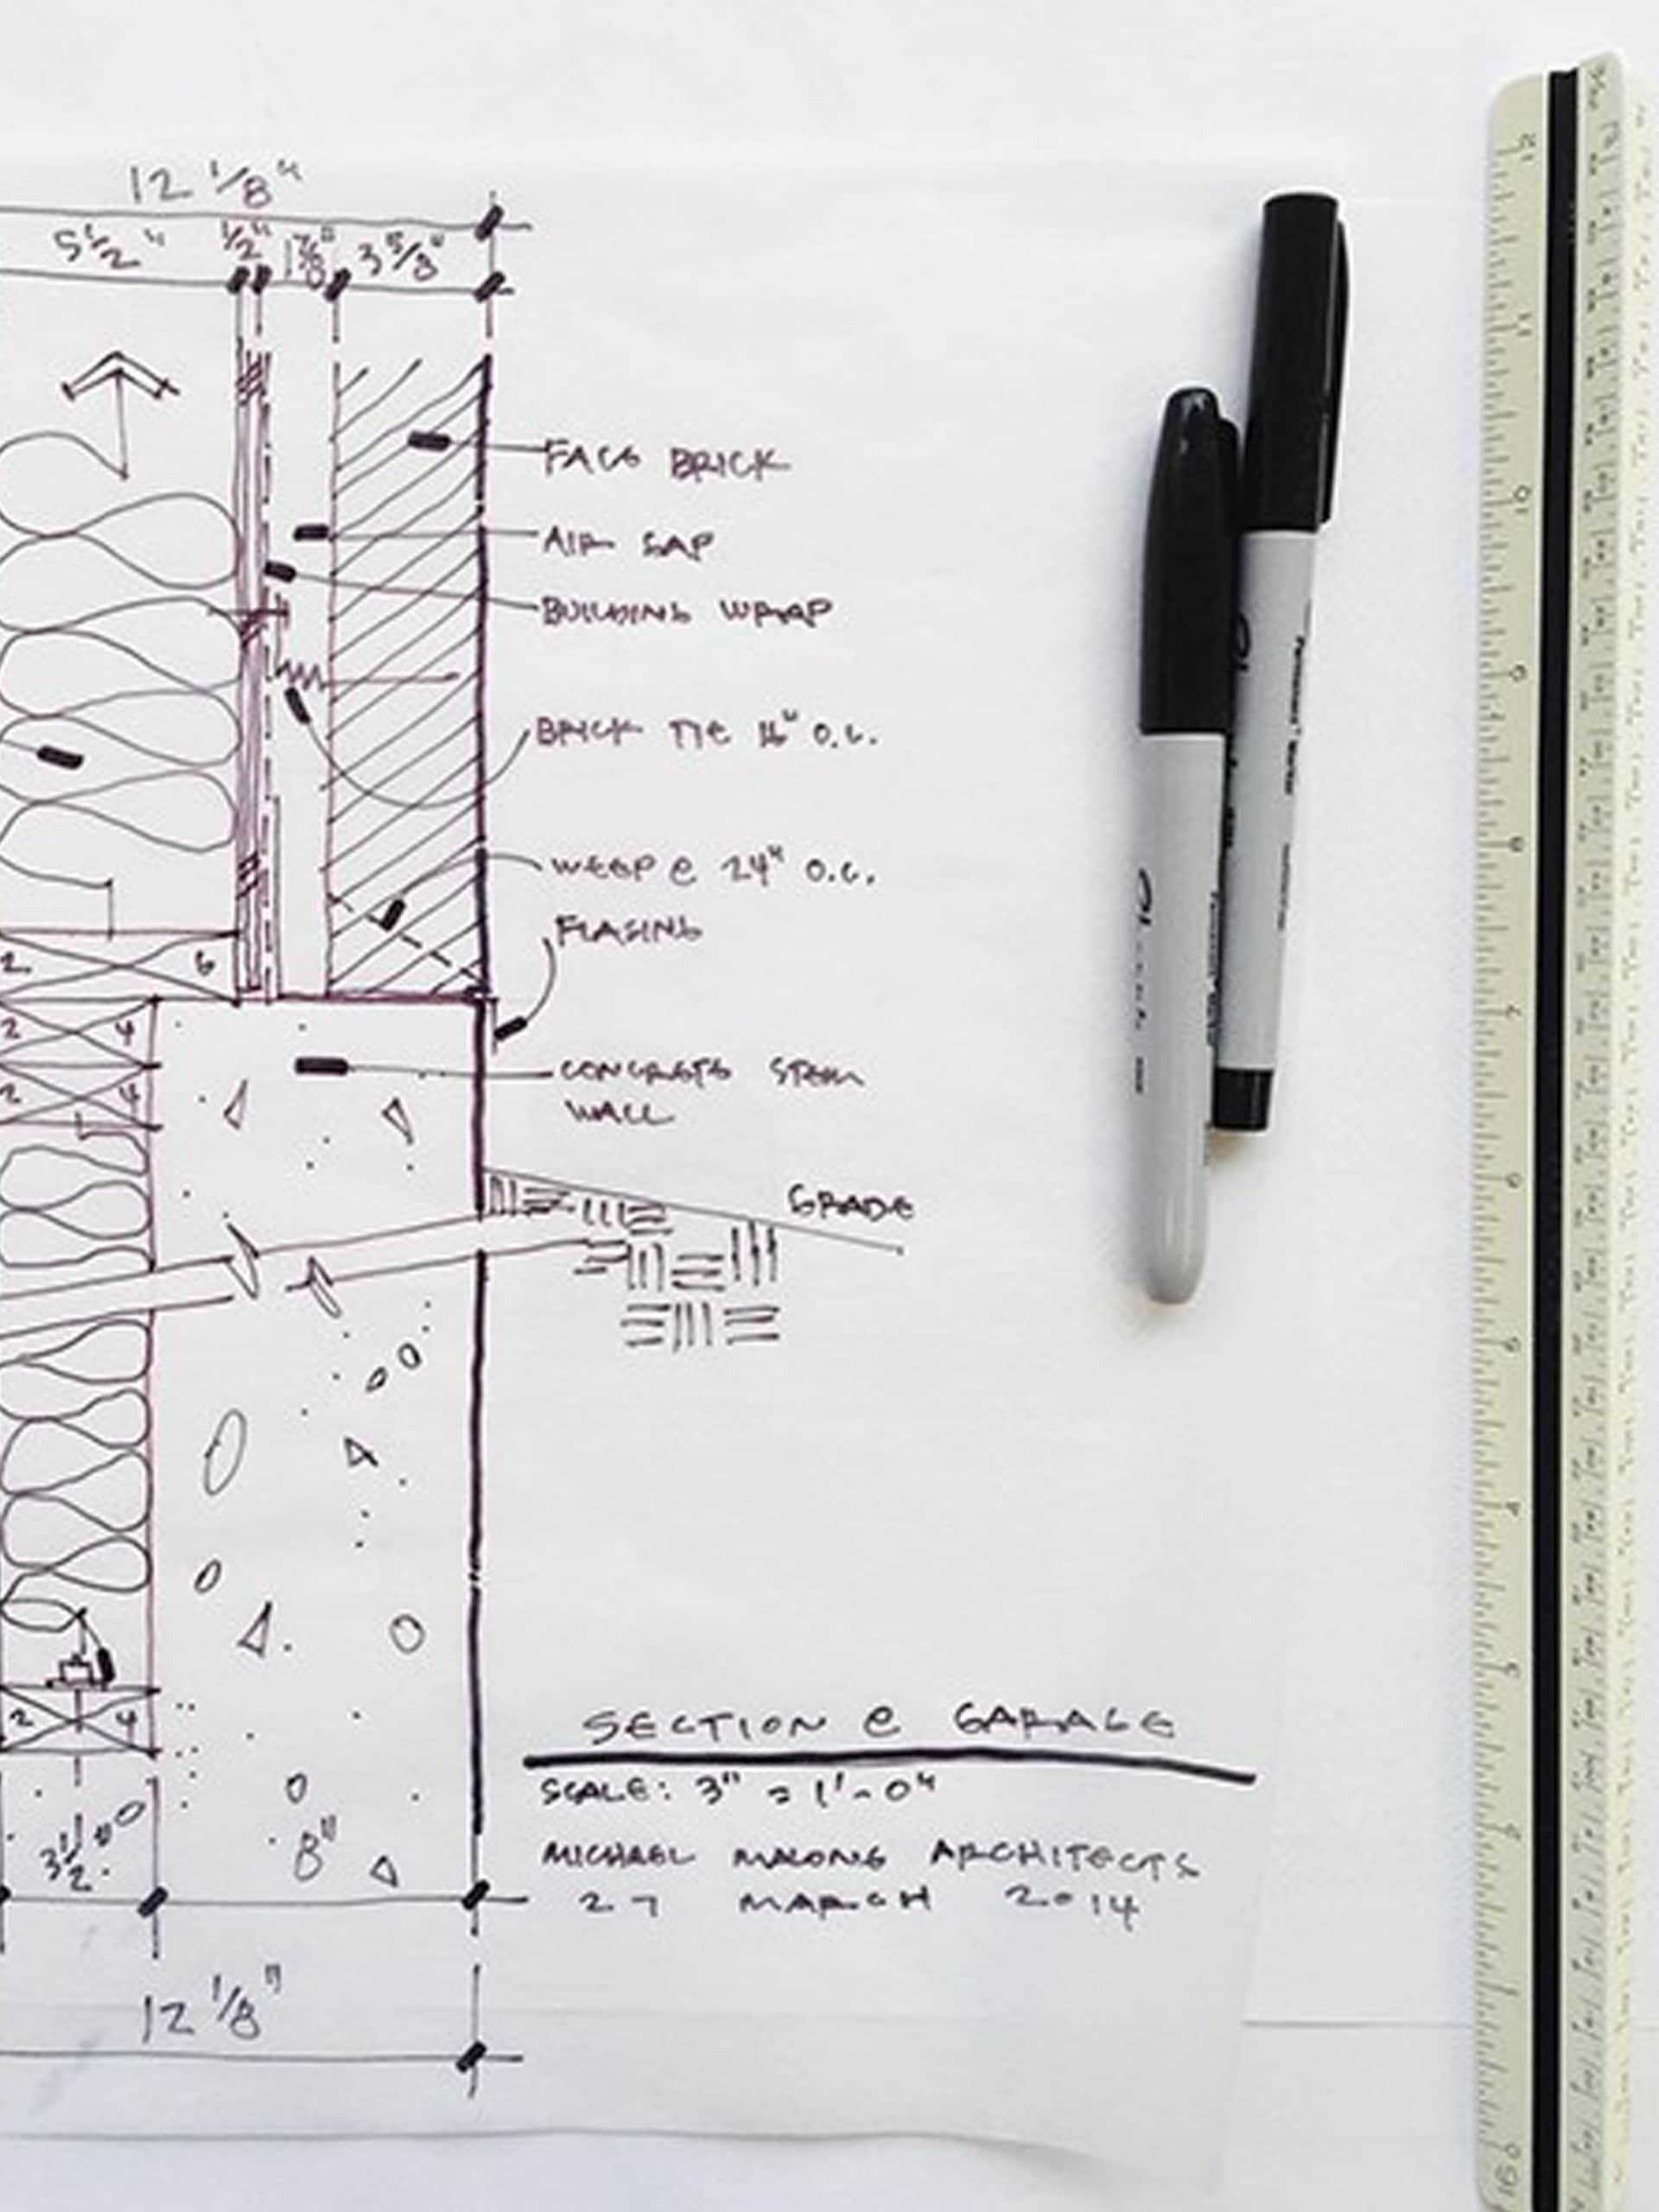 12 1/8"
5 1/2" 1/2" 1 7/8" 3 5/8"
FACE BRICK
AIR GAP
BUILDING WRAP
BRICK TIE 16" O.C.
WEEP @ 24" O.C.
FLASING
2 6
2 4
CONCRETE STEM
WALL
2 4
GRADE
2 4
SECTION @ GARAGE
SCALE: 3" = 1'-0"
3 1/2" 8"
MICHAEL MALONE ARCHITECTS
27 MARCH 2014
12 1/8"